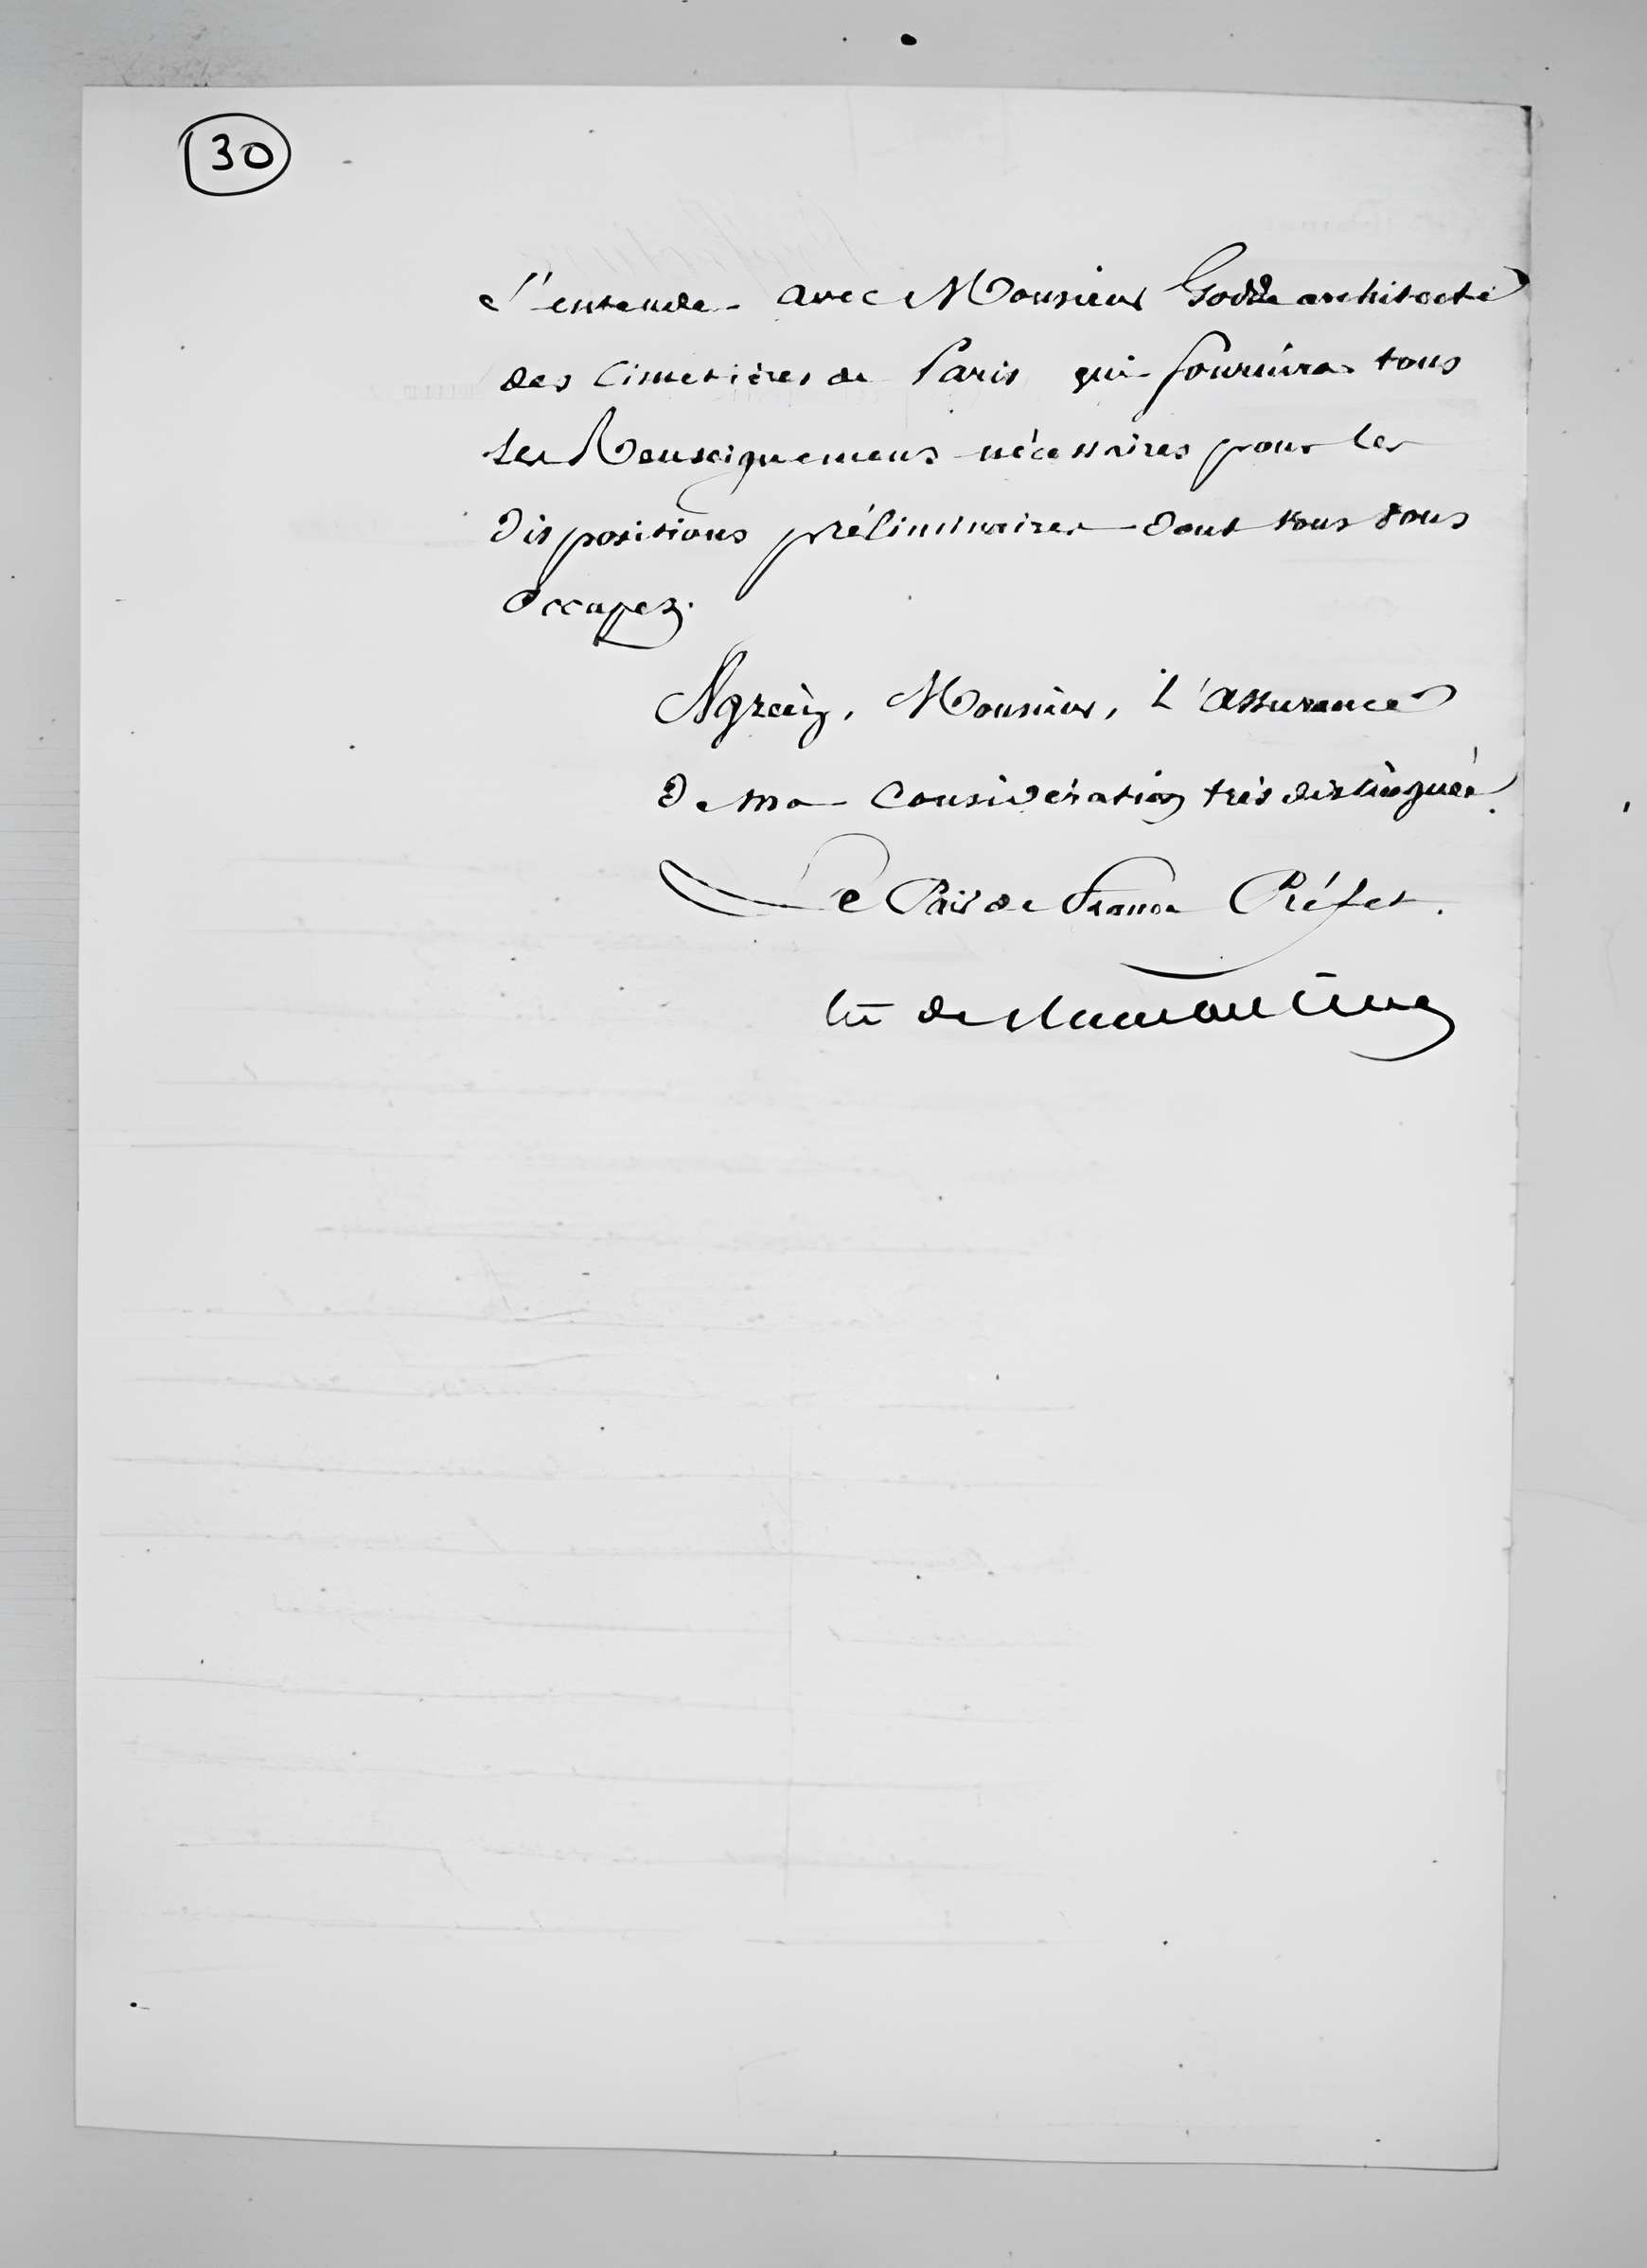 30
s'entende avec Monsieur Godde architecte
des Cimetières de Paris qui fournira tous
les Renseignemens nécessaires pour les
Dispositions préliminaires dont vous vous
Occupez.
Agréez, Monsieur, L'assurance
De ma Considération très distinguée.
Le Pair de France Préfet.
Cte de Rambuteau